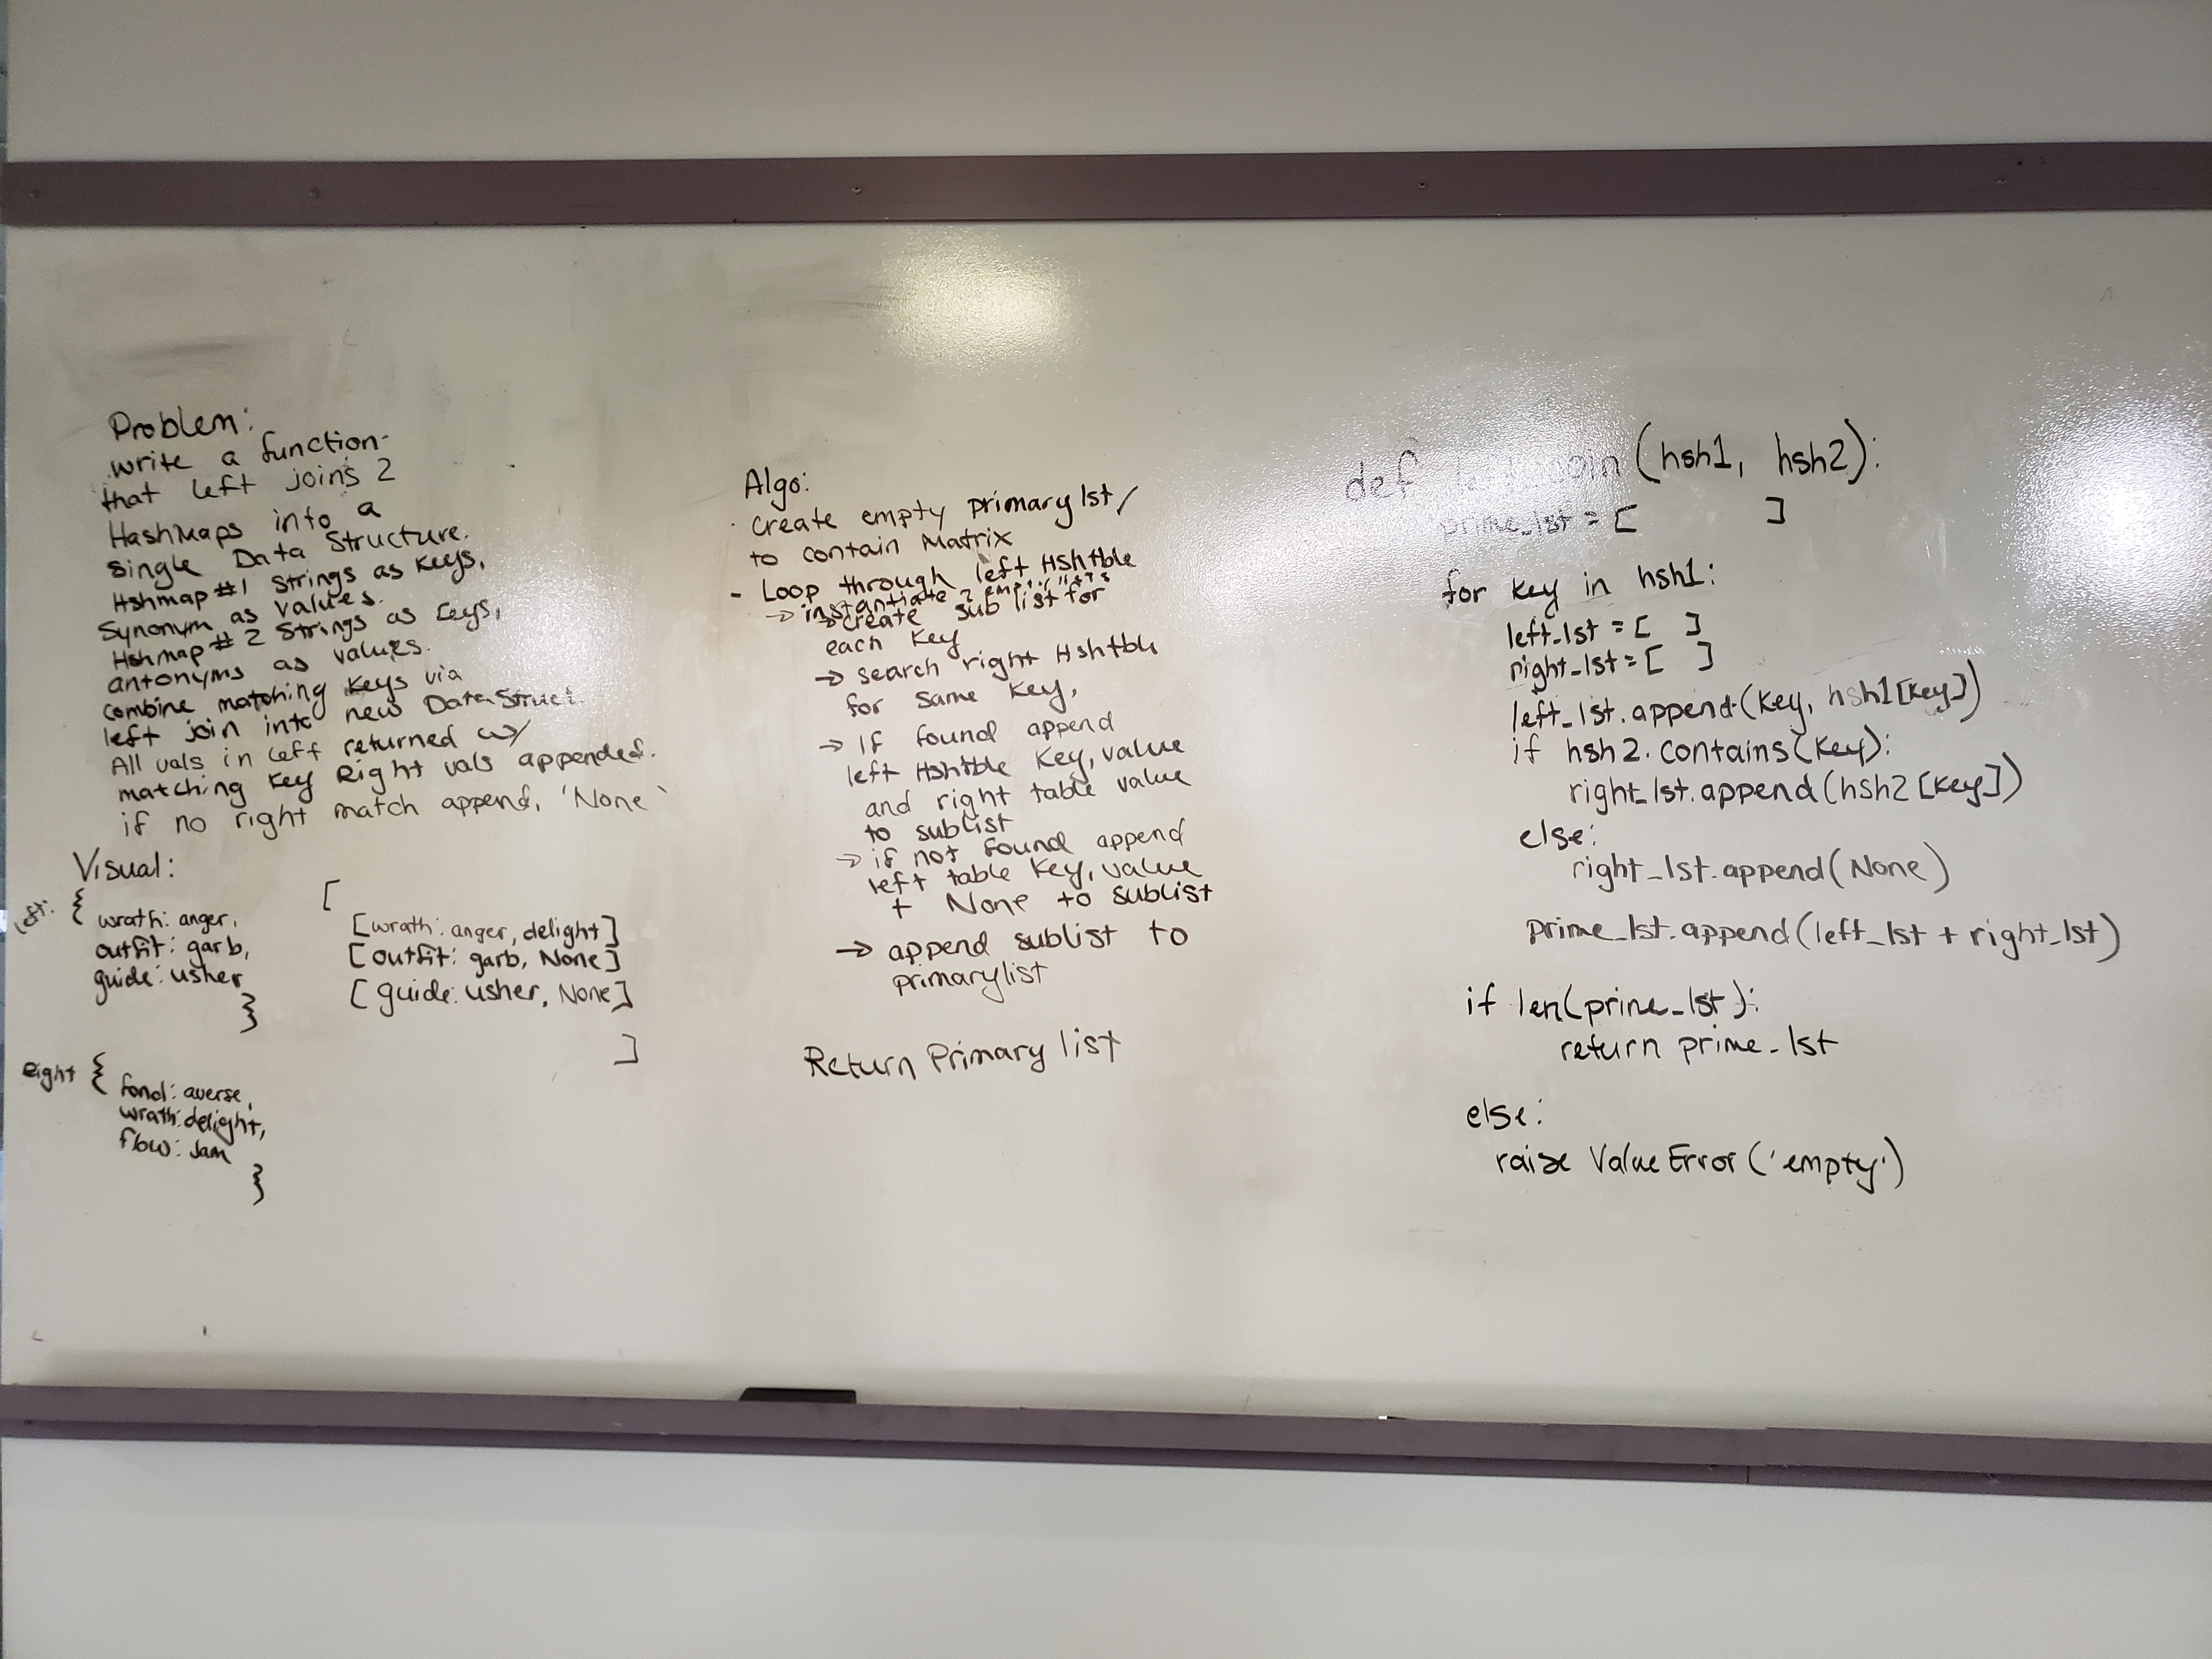 Problem:
write a function
that left joins 2
HashMaps into a
single Data Structure.
Hshmap #1 Strings as keys,
Synonym as values.
Hshmap #2 Strings as keys,
antonyms as values.
combine matching keys via
left join into new DataStruct.
All vals in left returned w/
matching key Right vals appended.
if no right match append, 'None'
Visual:
left: {
wrath: anger,
outfit: garb,
guide: usher
}
[
[wrath: anger, delight]
[outfit: garb, None]
[guide: usher, None]
]
Right {
fond: averse,
wrath: delight,
flow: Jam
}
Algo:
· create empty primary lst/
to contain Matrix
- Loop through left Hshtble
→ instantiate 2 empty lists
→ create sub list for
each key
→ search right Hshtble
for same key,
→ If found append
left Hshtble Key, value
and right table value
to sublist
→ if not found append
left table key, value
+ None to sublist
→ append sublist to
primarylist
Return Primary list
def join (hsh1, hsh2):
prime_lst = [ ]
for key in hsh1:
left_lst = [ ]
right_lst = [ ]
left_lst.append(key, hsh1[key])
if hsh2.contains(key):
right_lst.append(hsh2[key])
else:
right_lst.append(None)
prime_lst.append(left_lst + right_lst)
if len(prime_lst):
return prime_lst
else:
raise ValueError('empty')